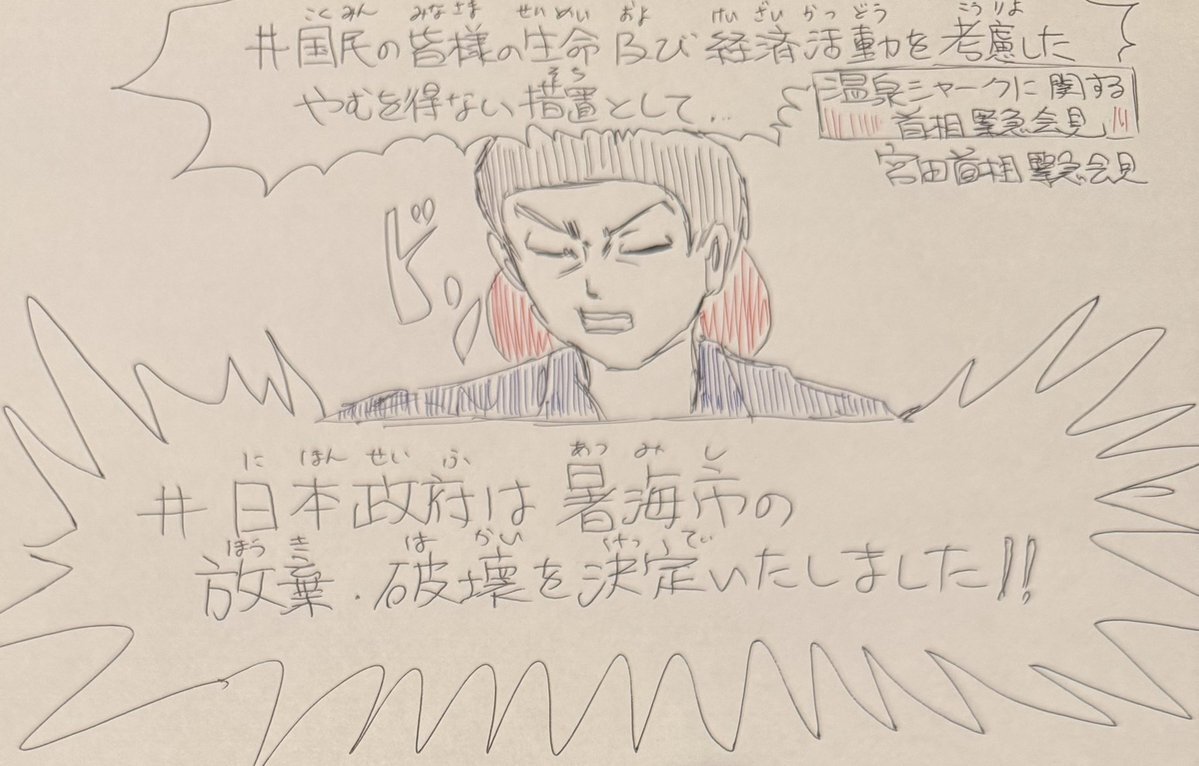 こくみん みなさま せいめい およ けいざいかつどう こうりよ
#国民の皆様の生命及び経済活動を考慮した
そち
やむを得ない措置として...
温泉シャークに関する
首相緊急会見
宮田首相緊急会見
ドン
にほんせいふ あつみし
#日本政府は暑海市の
ほうき はかい けってい
放棄・破壊を決定いたしました!!